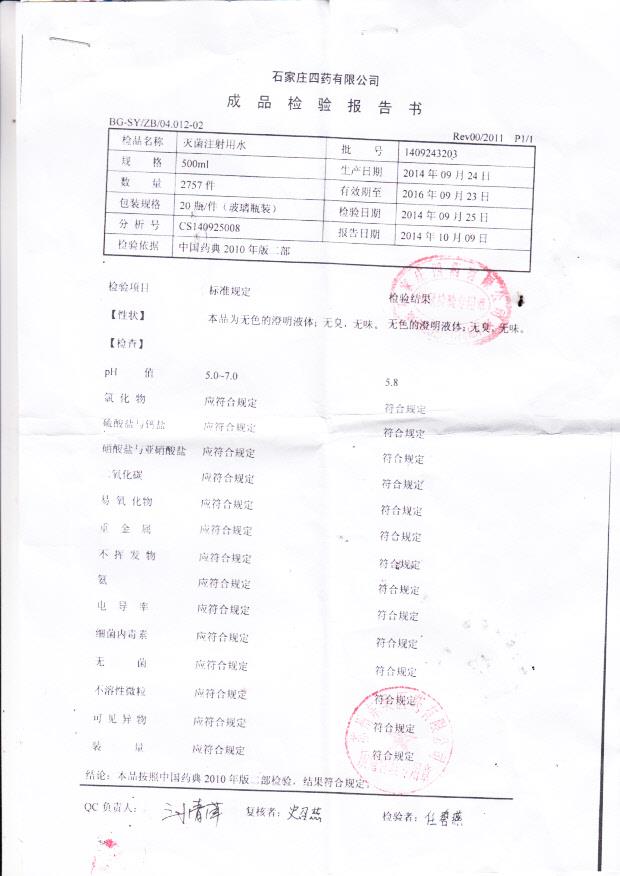 石家庄四药有限公司
成品检验报告书
BG-SY/ZB/04.012-02 Rev00/2011 P1/1
检品名称 灭菌注射用水 批号 1409243203
规格 500ml 生产日期 2014 年 09 月 24 日
数量 2757 件 有效期至 2016 年 09 月 23 日
包装规格 20 瓶/件（玻璃瓶装） 检验日期 2014 年 09 月 25 日
分析号 CS140925008 报告日期 2014 年 10 月 09 日
检验依据 中国药典 2010 年版二部
检验项目 标准规定 检验结果
【性状】 本品为无色的澄明液体；无臭，无味。 无色的澄明液体；无臭，无味。
【检查】
pH 值 5.0~7.0 5.8
氯化物 应符合规定 符合规定
硫酸盐与钙盐 应符合规定 符合规定
硝酸盐与亚硝酸盐 应符合规定 符合规定
二氧化碳 应符合规定 符合规定
易氧化物 应符合规定 符合规定
重金属 应符合规定 符合规定
不挥发物 应符合规定 符合规定
氨 应符合规定 符合规定
电导率 应符合规定 符合规定
细菌内毒素 应符合规定 符合规定
无菌 应符合规定 符合规定
不溶性微粒 应符合规定 符合规定
可见异物 应符合规定 符合规定
装量 应符合规定 符合规定
结论：本品按照中国药典 2010 年版二部检验，结果符合规定。
QC 负责人： 复核者： 检验者：